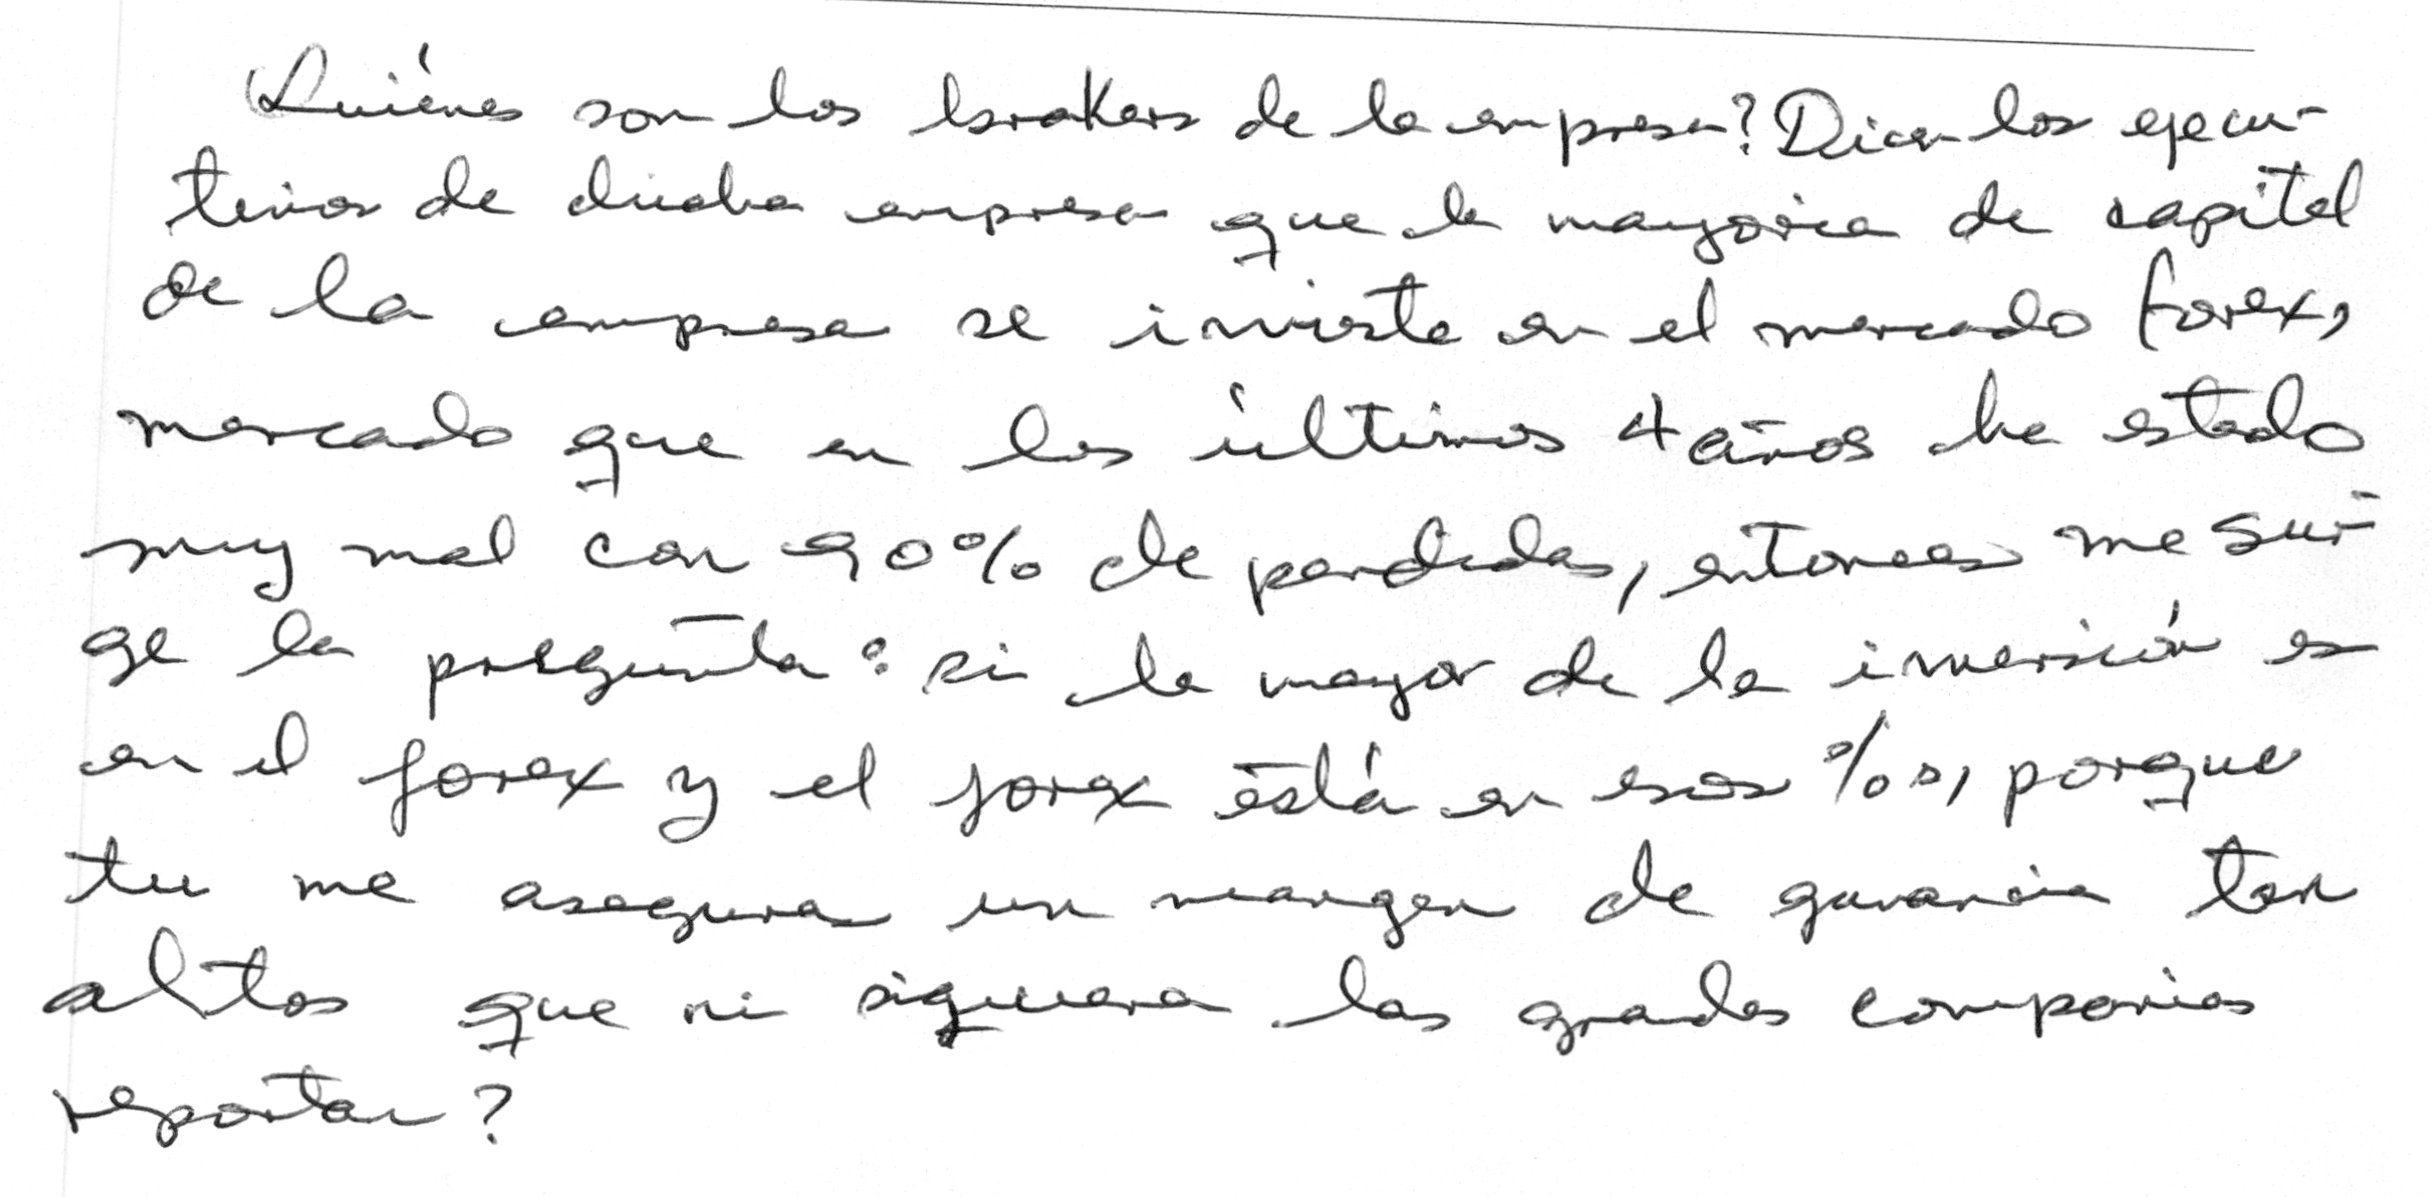 Quiénes son los brokers de la empresa? Dicen los ejecu-
tivos de dicha empresa que la mayoria de capital
de la empresa se invierte en el mercado forex,
mercado que en los últimos 4 años ha estado
muy mal con 90% de perdidas, entonces me sur-
ge la pregunta: si la mayor de la inversión es
en el forex y el forex está en esos %s, porque
tu me aseguras un margen de ganancia tan
altos que ni siquiera las grades companias
reportan?